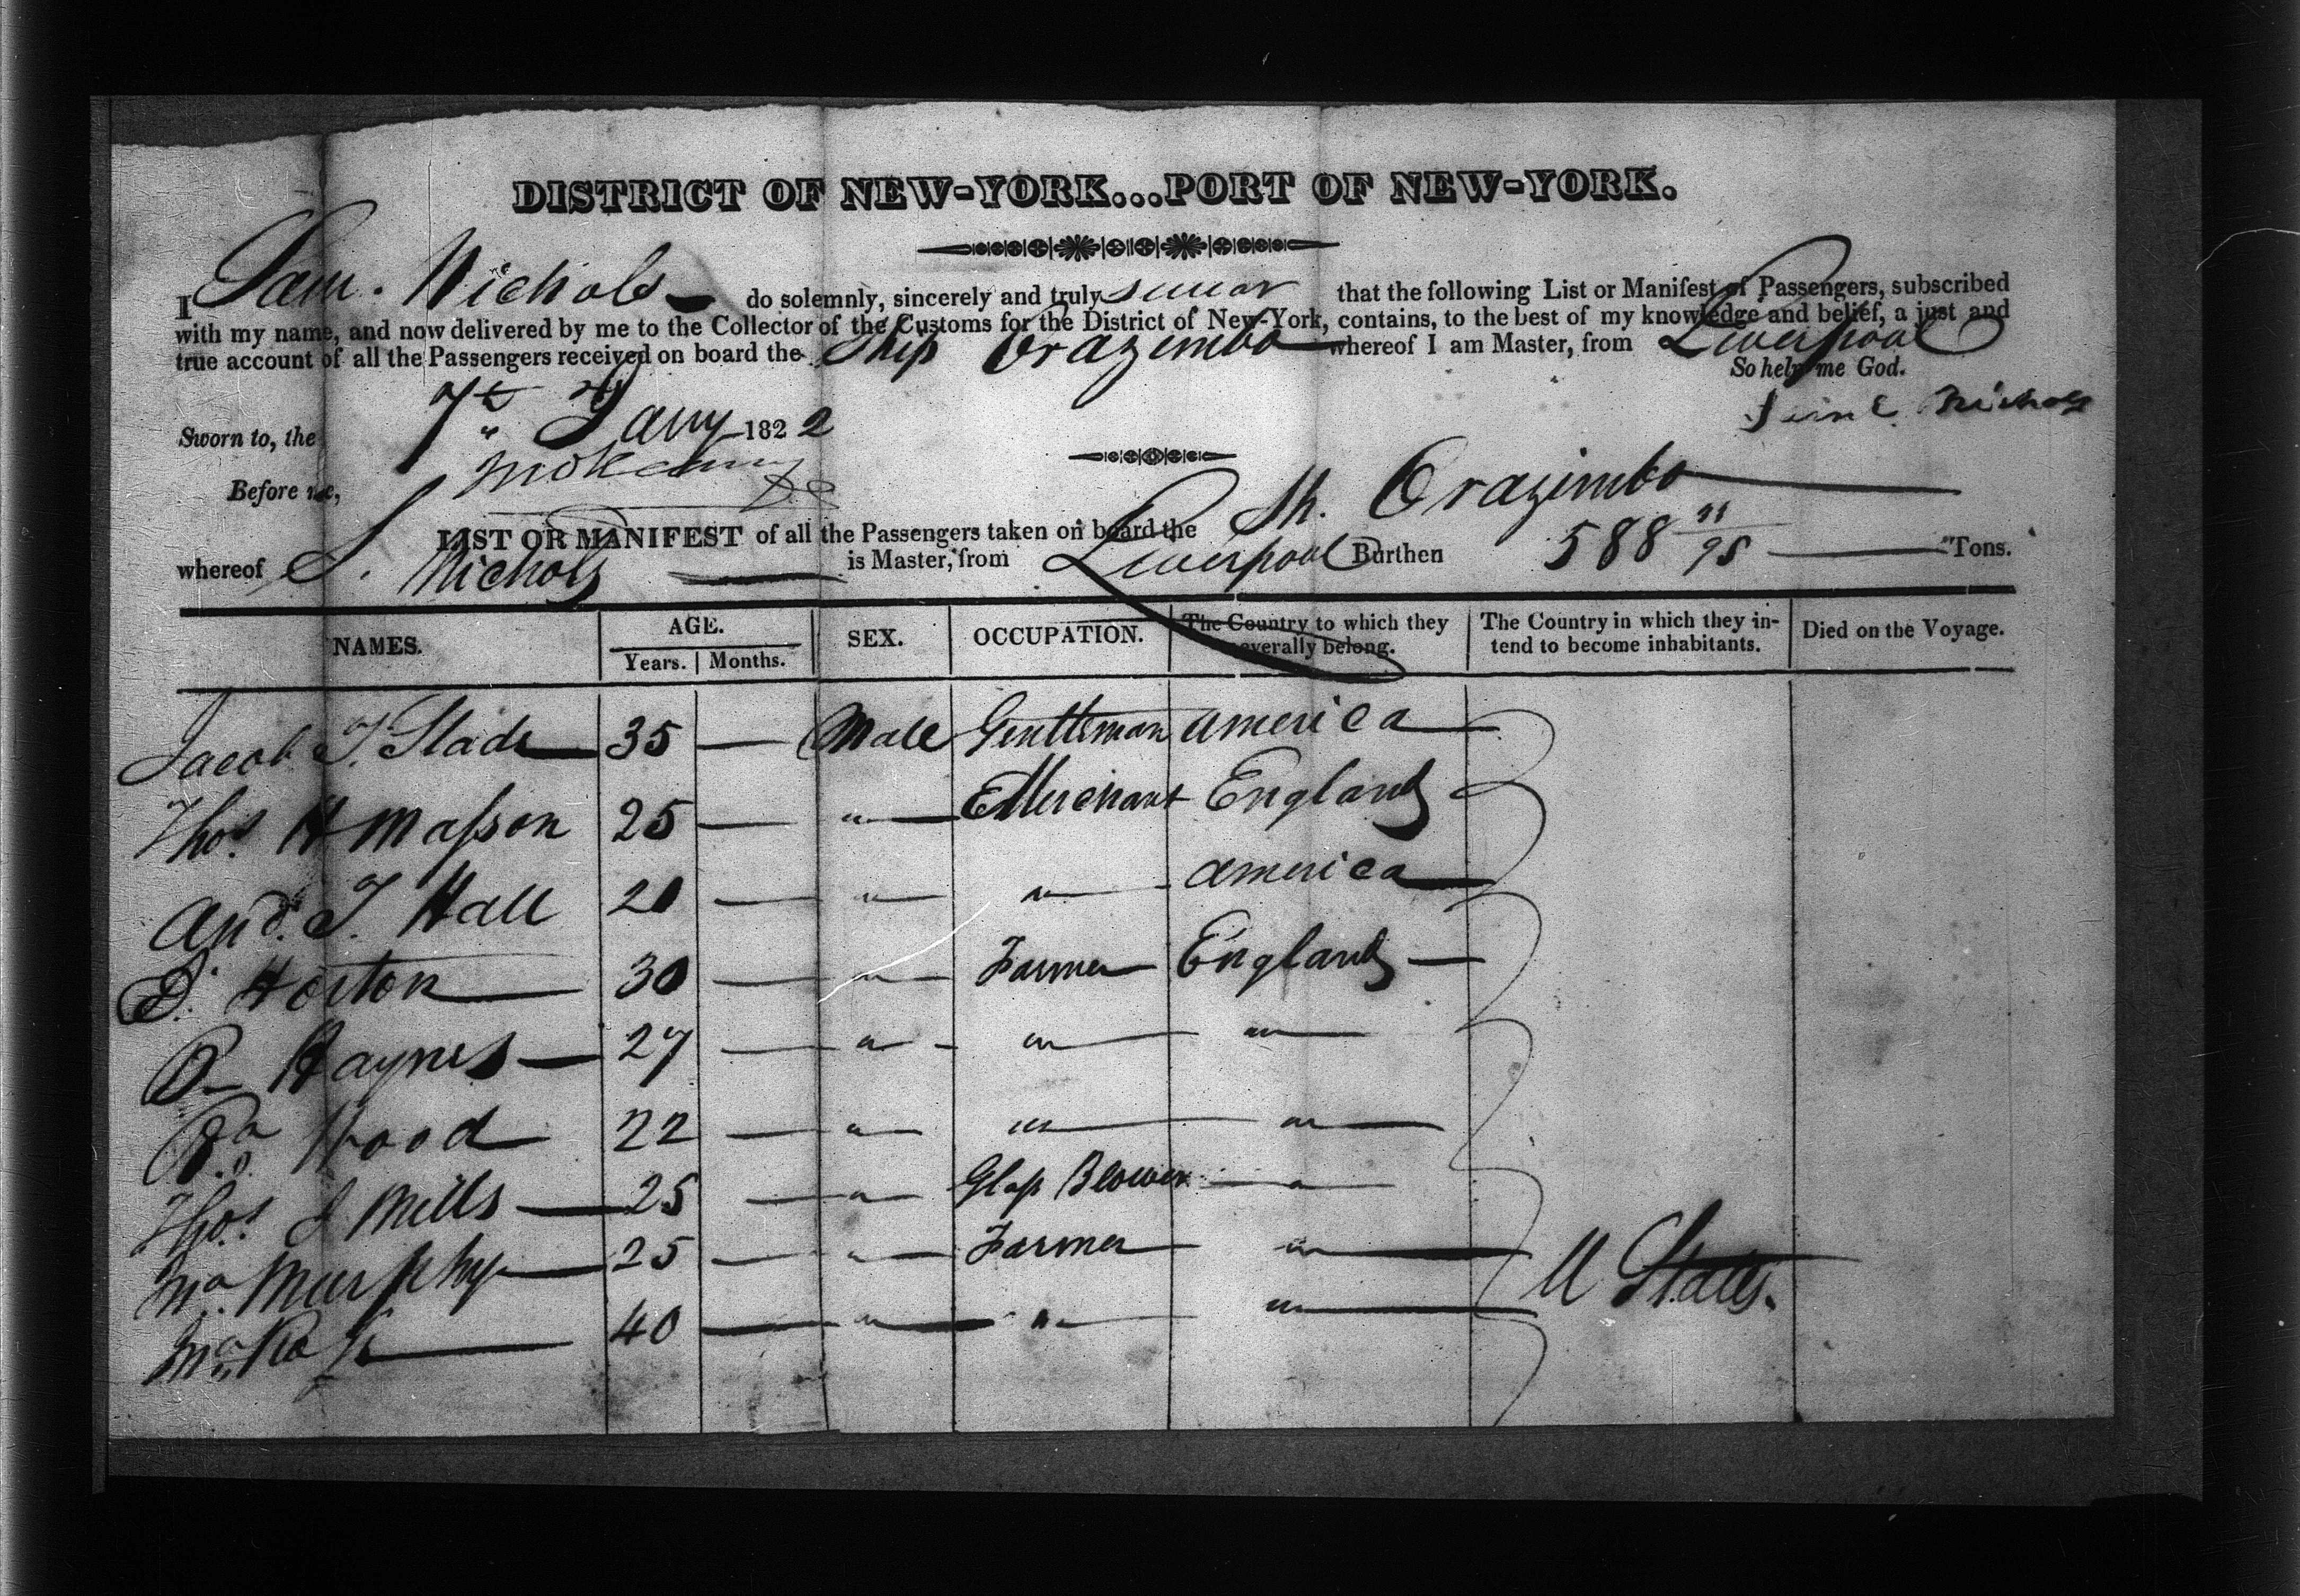 DISTRICT OF NEW-YORK...PORT OF NEW-YORK.
I Sam. Nichols do solemnly, sincerely and truly swear that the following List or Manifest of Passengers, subscribed
with my name, and now delivered by me to the Collector of the Customs for the District of New-York, contains, to the best of my knowledge and belief, a just and
true account of all the Passengers received on board the Ship Orazimbo whereof I am Master, from Liverpool
So help me God.
Sworn to, the 7th Jany 1822
Saml. Nichols
Before me,
LIST OR MANIFEST of all the Passengers taken on board the Sh. Orazimbo
whereof S. Nichols is Master, from Liverpool Burthen 588 11/95 Tons.
NAMES. AGE. Years. Months. SEX. OCCUPATION. The Country to which they severally belong. The Country in which they intend to become inhabitants. Died on the Voyage.
Jacob T. Slade 35 — Male Gentleman America
Thos. H Maſson 25 — " Merchant England
And. T. Hall 20 — " " America
D. Horton 30 — " Farmer England
Haynes 27 — " " "
Wood 22 — " " "
Thos. J Mills 25 — " Glaſs Blower "
Murphy 25 — " Farmer " U States.
40 — " " "